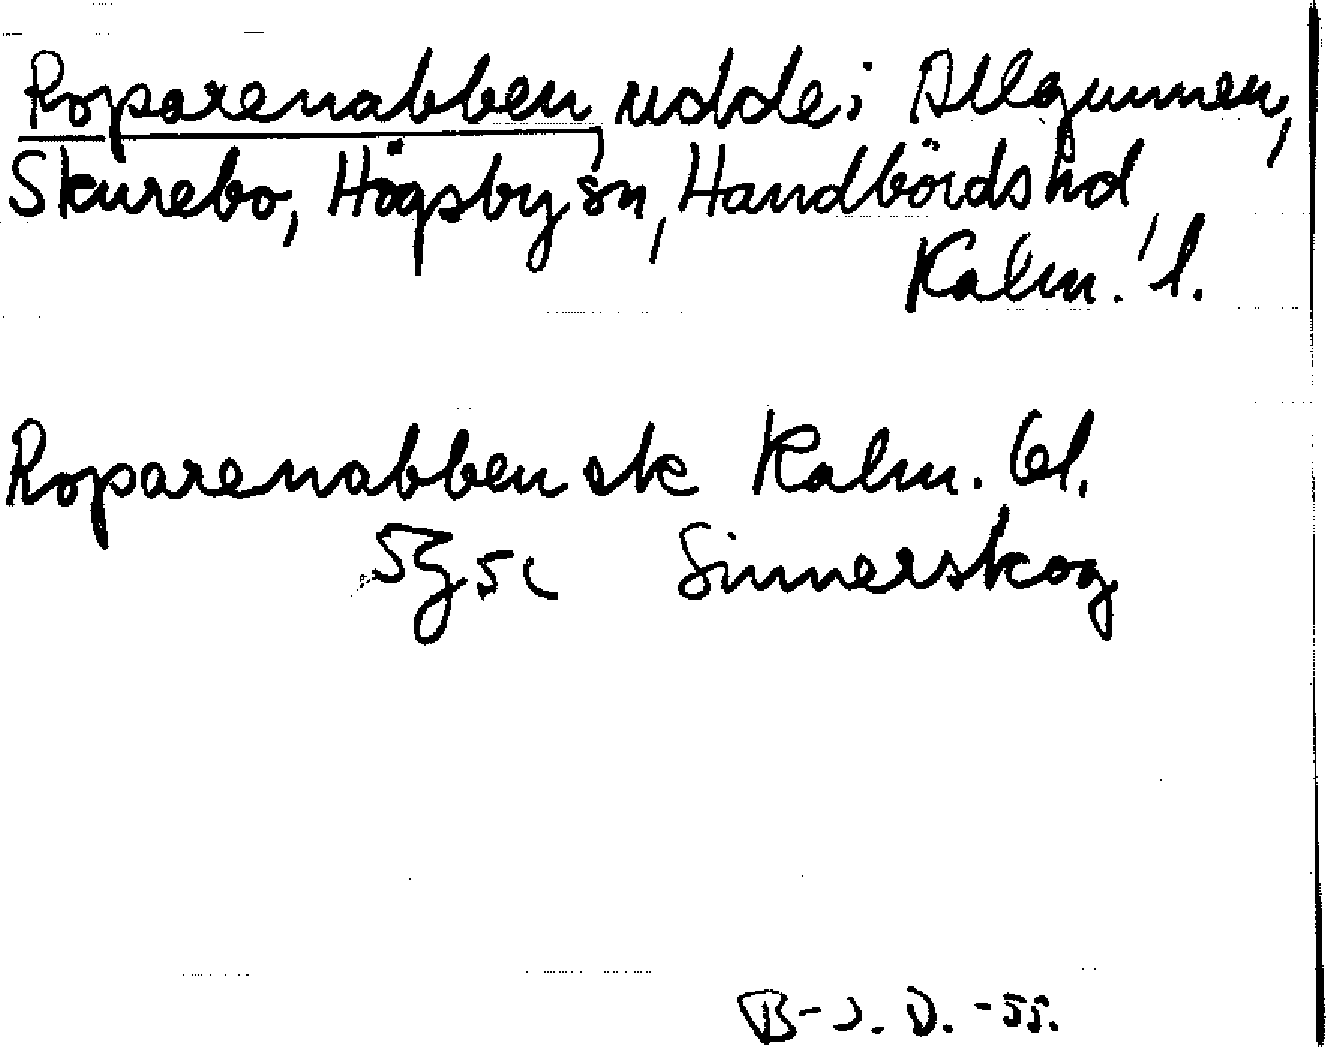 Roparenabben, udde i Allgunnen,
Skurebo, Högsby sn, Handbörds hd,
Kalm. l.
Roparenabben ek Kalm. bl.
5g5c Sinnerskog
B-J. D. -55.